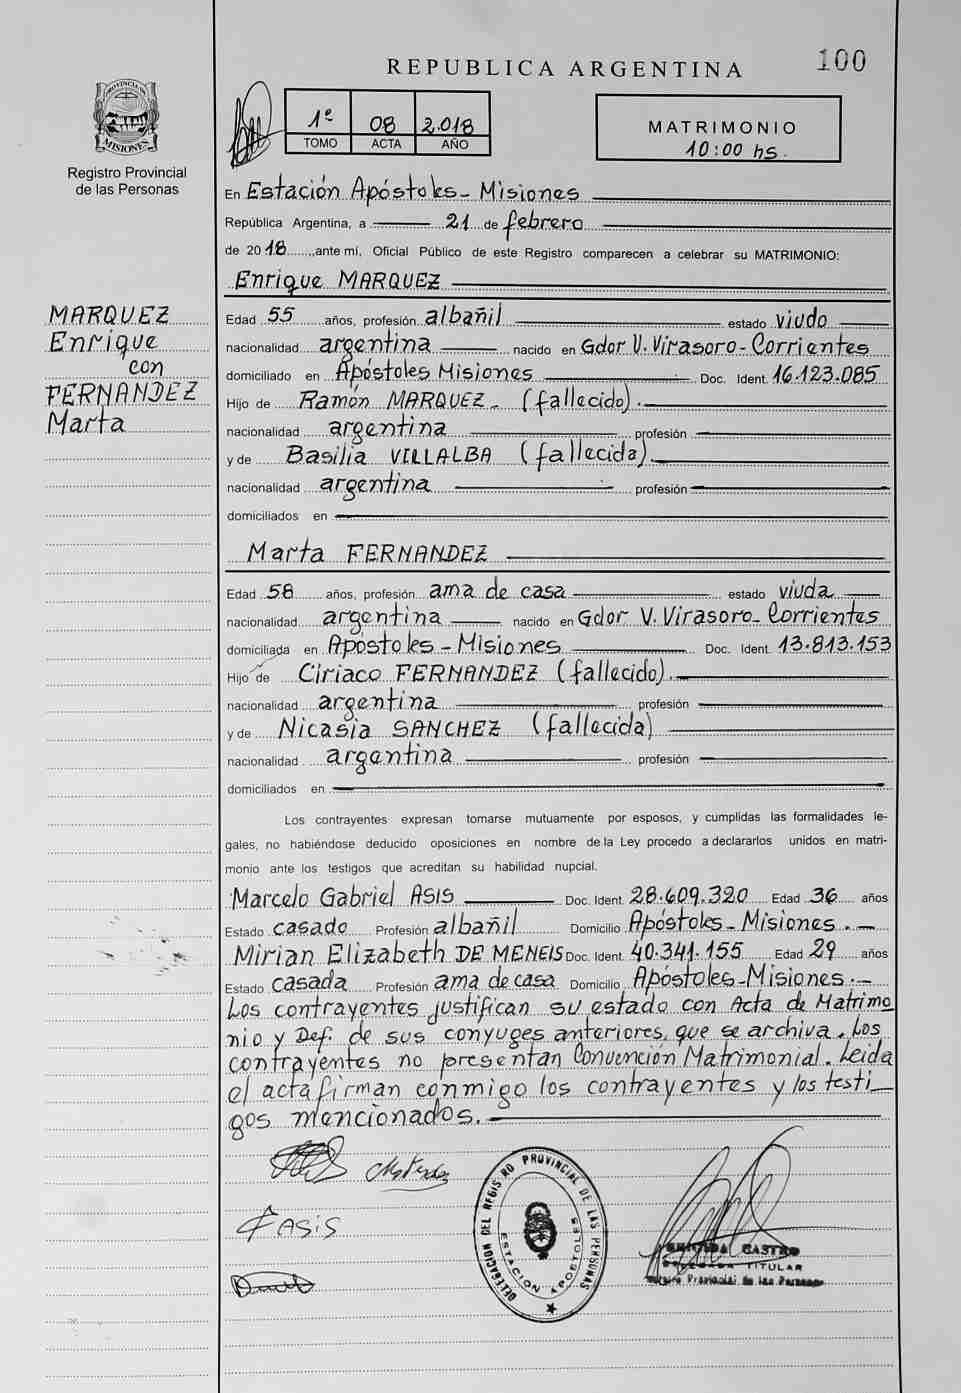 100
REPUBLICA ARGENTINA
PROVINCIA DE
MISIONES
Registro Provincial
de las Personas
1º 08 2.018
TOMO ACTA AÑO
MATRIMONIO
10:00 hs.
En Estación Apóstoles - Misiones
República Argentina, a 21 de febrero
de 2018, ante mí, Oficial Público de este Registro comparecen a celebrar su MATRIMONIO:
Enrique MARQUEZ
MARQUEZ
Enrique
con
FERNANDEZ
Marta
Edad 55 años, profesión albañil estado viudo
nacionalidad argentina nacido en Gdor V. Virasoro - Corrientes
domiciliado en Apóstoles Misiones Doc. Ident. 16.123.085
Hijo de Ramón MARQUEZ - (fallecido).
nacionalidad argentina profesión
y de Basilia VILLALBA (fallecida).
nacionalidad argentina profesión
domiciliados en
Marta FERNANDEZ
Edad 58 años, profesión ama de casa estado viuda
nacionalidad argentina nacido en Gdor V. Virasoro - Corrientes
domiciliada en Apóstoles - Misiones Doc. Ident. 13.813.153
Hijo de Ciriaco FERNANDEZ (fallecido).
nacionalidad argentina profesión
y de Nicasia SANCHEZ (fallecida)
nacionalidad argentina profesión
domiciliados en
Los contrayentes expresan tomarse mutuamente por esposos, y cumplidas las formalidades le-
gales, no habiéndose deducido oposiciones en nombre de la Ley procedo a declararlos unidos en matri-
monio ante los testigos que acreditan su habilidad nupcial.
Marcelo Gabriel ASIS Doc. Ident. 28.609.320 Edad 36 años
Estado casado Profesión albañil Domicilio Apóstoles - Misiones. -
Mirian Elizabeth DE MENEIS Doc. Ident. 40.341.155 Edad 29 años
Estado casada Profesión ama de casa Domicilio Apóstoles - Misiones. -
Los contrayentes justifican su estado con Acta de Matrimo
nio y Def. de sus conyuges anteriores, que se archiva. Los
contrayentes no presentan Convención Matrimonial. Leida
el acta firman conmigo los contrayentes y los testi_
gos mencionados.
ASIS
DELEGACION DEL REGISTRO PROVINCIAL DE LAS PERSONAS
ESTACION APOSTOLES
CASTRO
DELEGADA TITULAR
Registro Provincial de las Personas